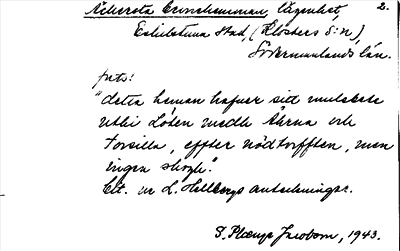 Åkersta Cronehemman, lägenhet, 2.
Eskilstuna Stad, (Klosters s:n),
Södermanlands län.
"detta heman hafuer sitt mulebete
uthi Löten medh Åkrna och
Torsilla, effter nödtorfften, men
ingen skogh".
Cit. ur L. Hellbergs anteckningar.
S. Plænge Jacobson, 1943.